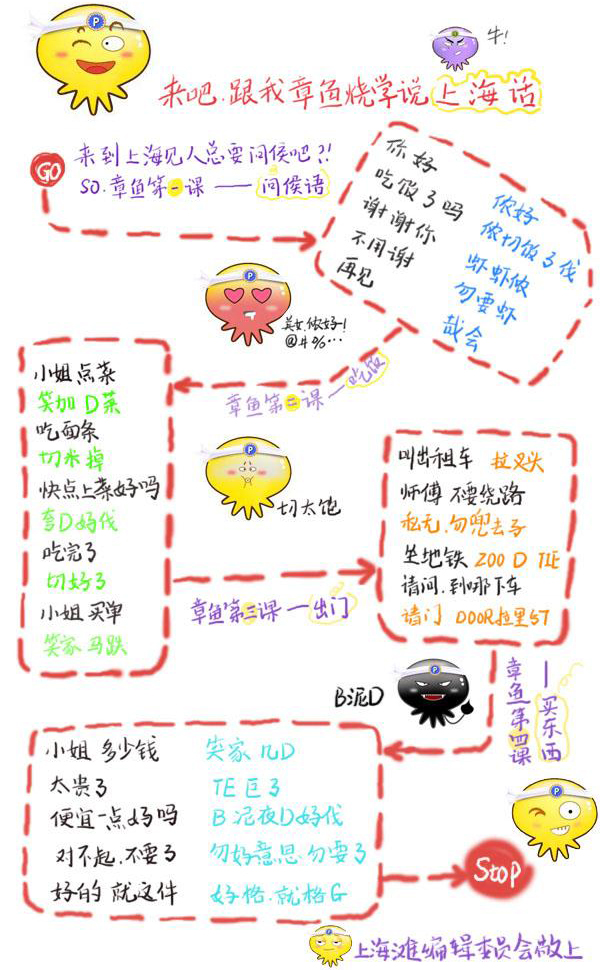 牛!
来吧.跟我章鱼烧学说上海话
GO
来到上海见人总要问侯吧?!
SO.章鱼第一课 —— 问侯语
你好
吃饭了吗
谢谢你
不用谢
再见
侬好
侬切饭了伐
虾虾侬
勿要虾
哉会
P
美女.侬好!
@#%…
章鱼第二课—吃饭
小姐点菜
笑加D菜
吃面条
切米掉
快点上菜好吗
夸D好伐
吃完了
切好了
小姐买单
笑家马跌
P
切太饱
章鱼第三课—出门
叫出租车 拉叉头
师傅 不要绕路
私无.勿兜去子
坐地铁 ZOO D TIE
请问.到哪下车
请门 DOOR拉里5T
B泥D
章鱼第四课
—买东西
小姐 多少钱 笑家 几D
太贵了 TE巨了
便宜一点好吗 B泥夜D好伐
对不起.不要了 勿好意思.勿要了
好的 就这件 好格.就格G
Stop
上海滩编辑委员会敬上